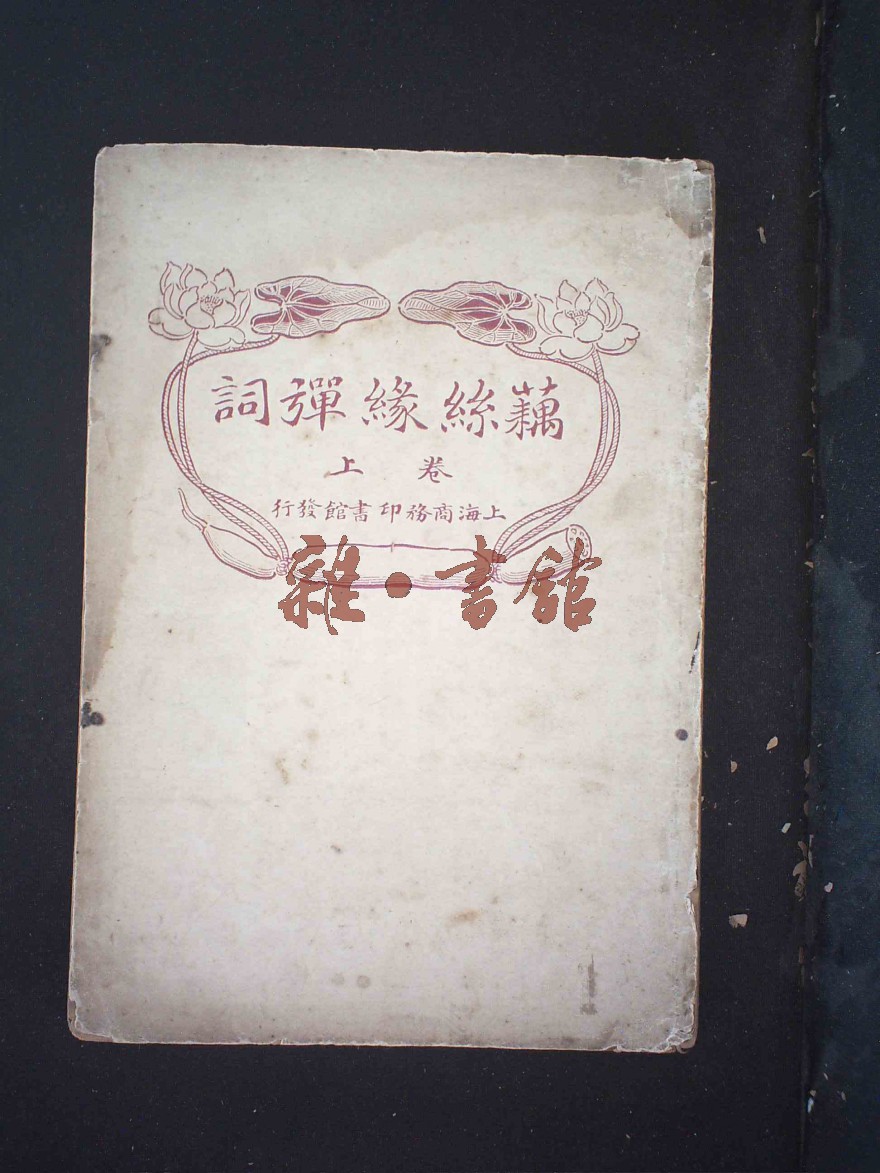 藕絲緣彈詞
卷上
上海商務印書館發行
雜·書館